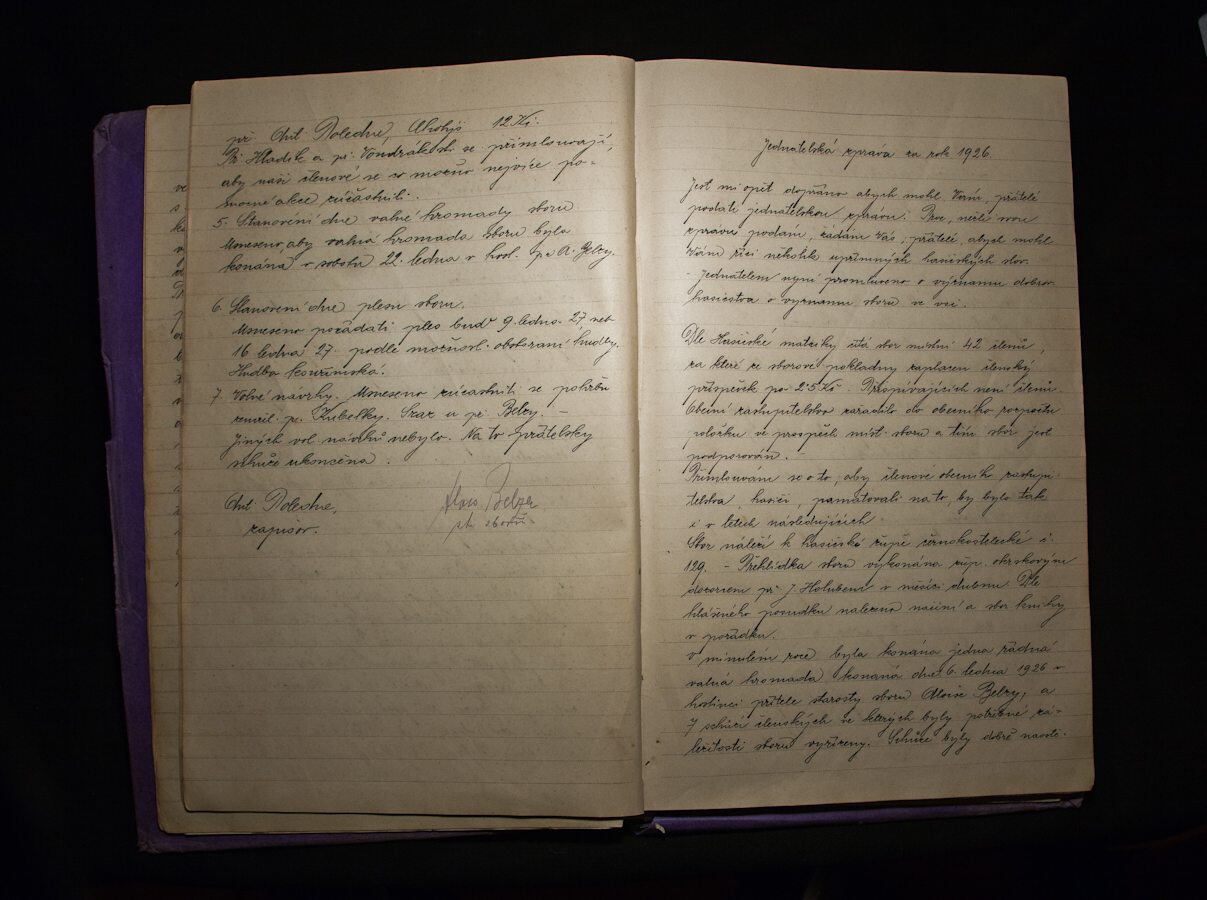 př. Ant. Poledne, 12 Kč.
Př. Hladík a př. Vondráček se přimlouvají,
aby naši členové se co možno nejvíce po-
mocné akce zúčastnili.
5. Stanovení dne valné hromady sboru
Usneseno, aby valná hromada sboru byla
konána v sobotu 22. ledna v host. p. A. Belzy.
6. Stanovení dne plesu sboru.
Usneseno pořádati ples buď 9. ledna 27, neb
16 ledna 27. podle možnosti obstarání hudby.
Hudba kouřimská.
7. Volné návrhy. Usneseno zúčastniti se pohřbu
p. Kubelky. a př. Belzy. –
Jiných vol. návrhů nebylo. Na to přátelsky
schůze ukončena.
Ant. Poledne,
zapisov.
Alois Belza
st. sboru
Jednatelská zpráva za rok 1926.
Jest mi opět dopřáno abych mohl Vám, přátelé
podati jednatelskou zprávu. Prve, nežli svou
zprávu podám, žádám Vás, přátelé, abych mohl
Vám říci několik upřímných hasičských slov.
- Jednatelem nyní promluveno o významu dobrov.
hasičstva o významu sboru ve vsi.
Dle Hasičské matriky čítá sbor místní 42 členů,
za které ze sborové pokladny zaplacen členský
příspěvek po 2.5 Kč. Přispívajících není členů.
Obecní zastupitelstvo zařadilo do obecního rozpočtu
položku ve prospěch míst. sboru a tím sbor jest
podporován.
Přimlouvám se o to, aby členové obecních zastupi-
telstva, hasiči, pamatovali na to, by bylo tak
i v letech následujících.
Sbor náleží k hasičské župě černokostelecké č.
129. - Přehlídka sboru vykonána žup. okrskovým
dozorcem př. J. Holubem v měsíci dubnu. Dle
hlášeného posudku nalezeno náčiní a sbor. knihy
v pořádku.
V minulém roce byla konána jedna řádná
valná hromada konaná dne 6. ledna 1926 v
hostinci přítele starosty sboru Aloise Belzy, a
7 schůzí členských ve kterých byly potřebné zá-
ležitosti sboru vyřízeny. Schůze byly dobře navště-